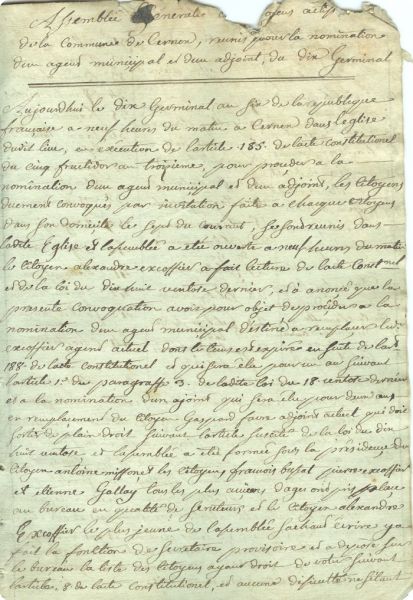 Assemblée Générale
de la Commune de Cernex, reunis pour la nomination
d'un agent municipal et d'un adjoint, du dix Germinal
Aujourdhui le dix Germinal an six de la republique
française a neuf heures du matin a Cernex dans l'eglise
dudit lieu, en execution de l'article 185 de lacte constitutionel
du cinq fructidor an troisieme, pour proceder a la
nomination d'un agent municipal et d'un adjoint, les Citoyens
duement convoqués par invitation faite a chaque Citoyens
dans son domicile le sept du courant, se sont reunis dans
ladite Eglise et lassemblée a eté ouverte a neuf heures du matin
le Citoyen alexandre excoffier a fait lecture de lacte Constnel
et de la loi du dix huit ventose dernier, et a anoncé que la
presente Convoquation avoit pour objet de proceder a la
nomination d'un agent municipal destiné a remplacer
excoffier agent actuel dont le tems est expiré en suite de
188 de lacte constitutionel et qui sera elu pour un an suivant
l'article 1er du paragraffe 3. de ladite loi du 18 ventose dernier
et a la nomination d'un ajoint qui sera elu pour deux ans
en remplacement du Citoyen Gaspard favre adjoint actuel qui doit
sortir de plain droit suivant l'article susdit de la loi du dix
huit ventose et lassemblée a eté formée sous la présidence du
Citoyen antoine et les Citoyens françois pierre excoffier
et etienne Gallay tous les plus anciens dages ont pris place
au bureau en qualité de scruteurs et le Citoyen alexandre
Excoffier le plus jeune de lassemblée sachant ecrire y a
fait la fonction de Secretaire provisoire et a deposé sur
le bureau la liste des Citoyens ayant droit de voter suivant
l'article 8 de lacte Constitutionel, et aucune disicultée ne silant